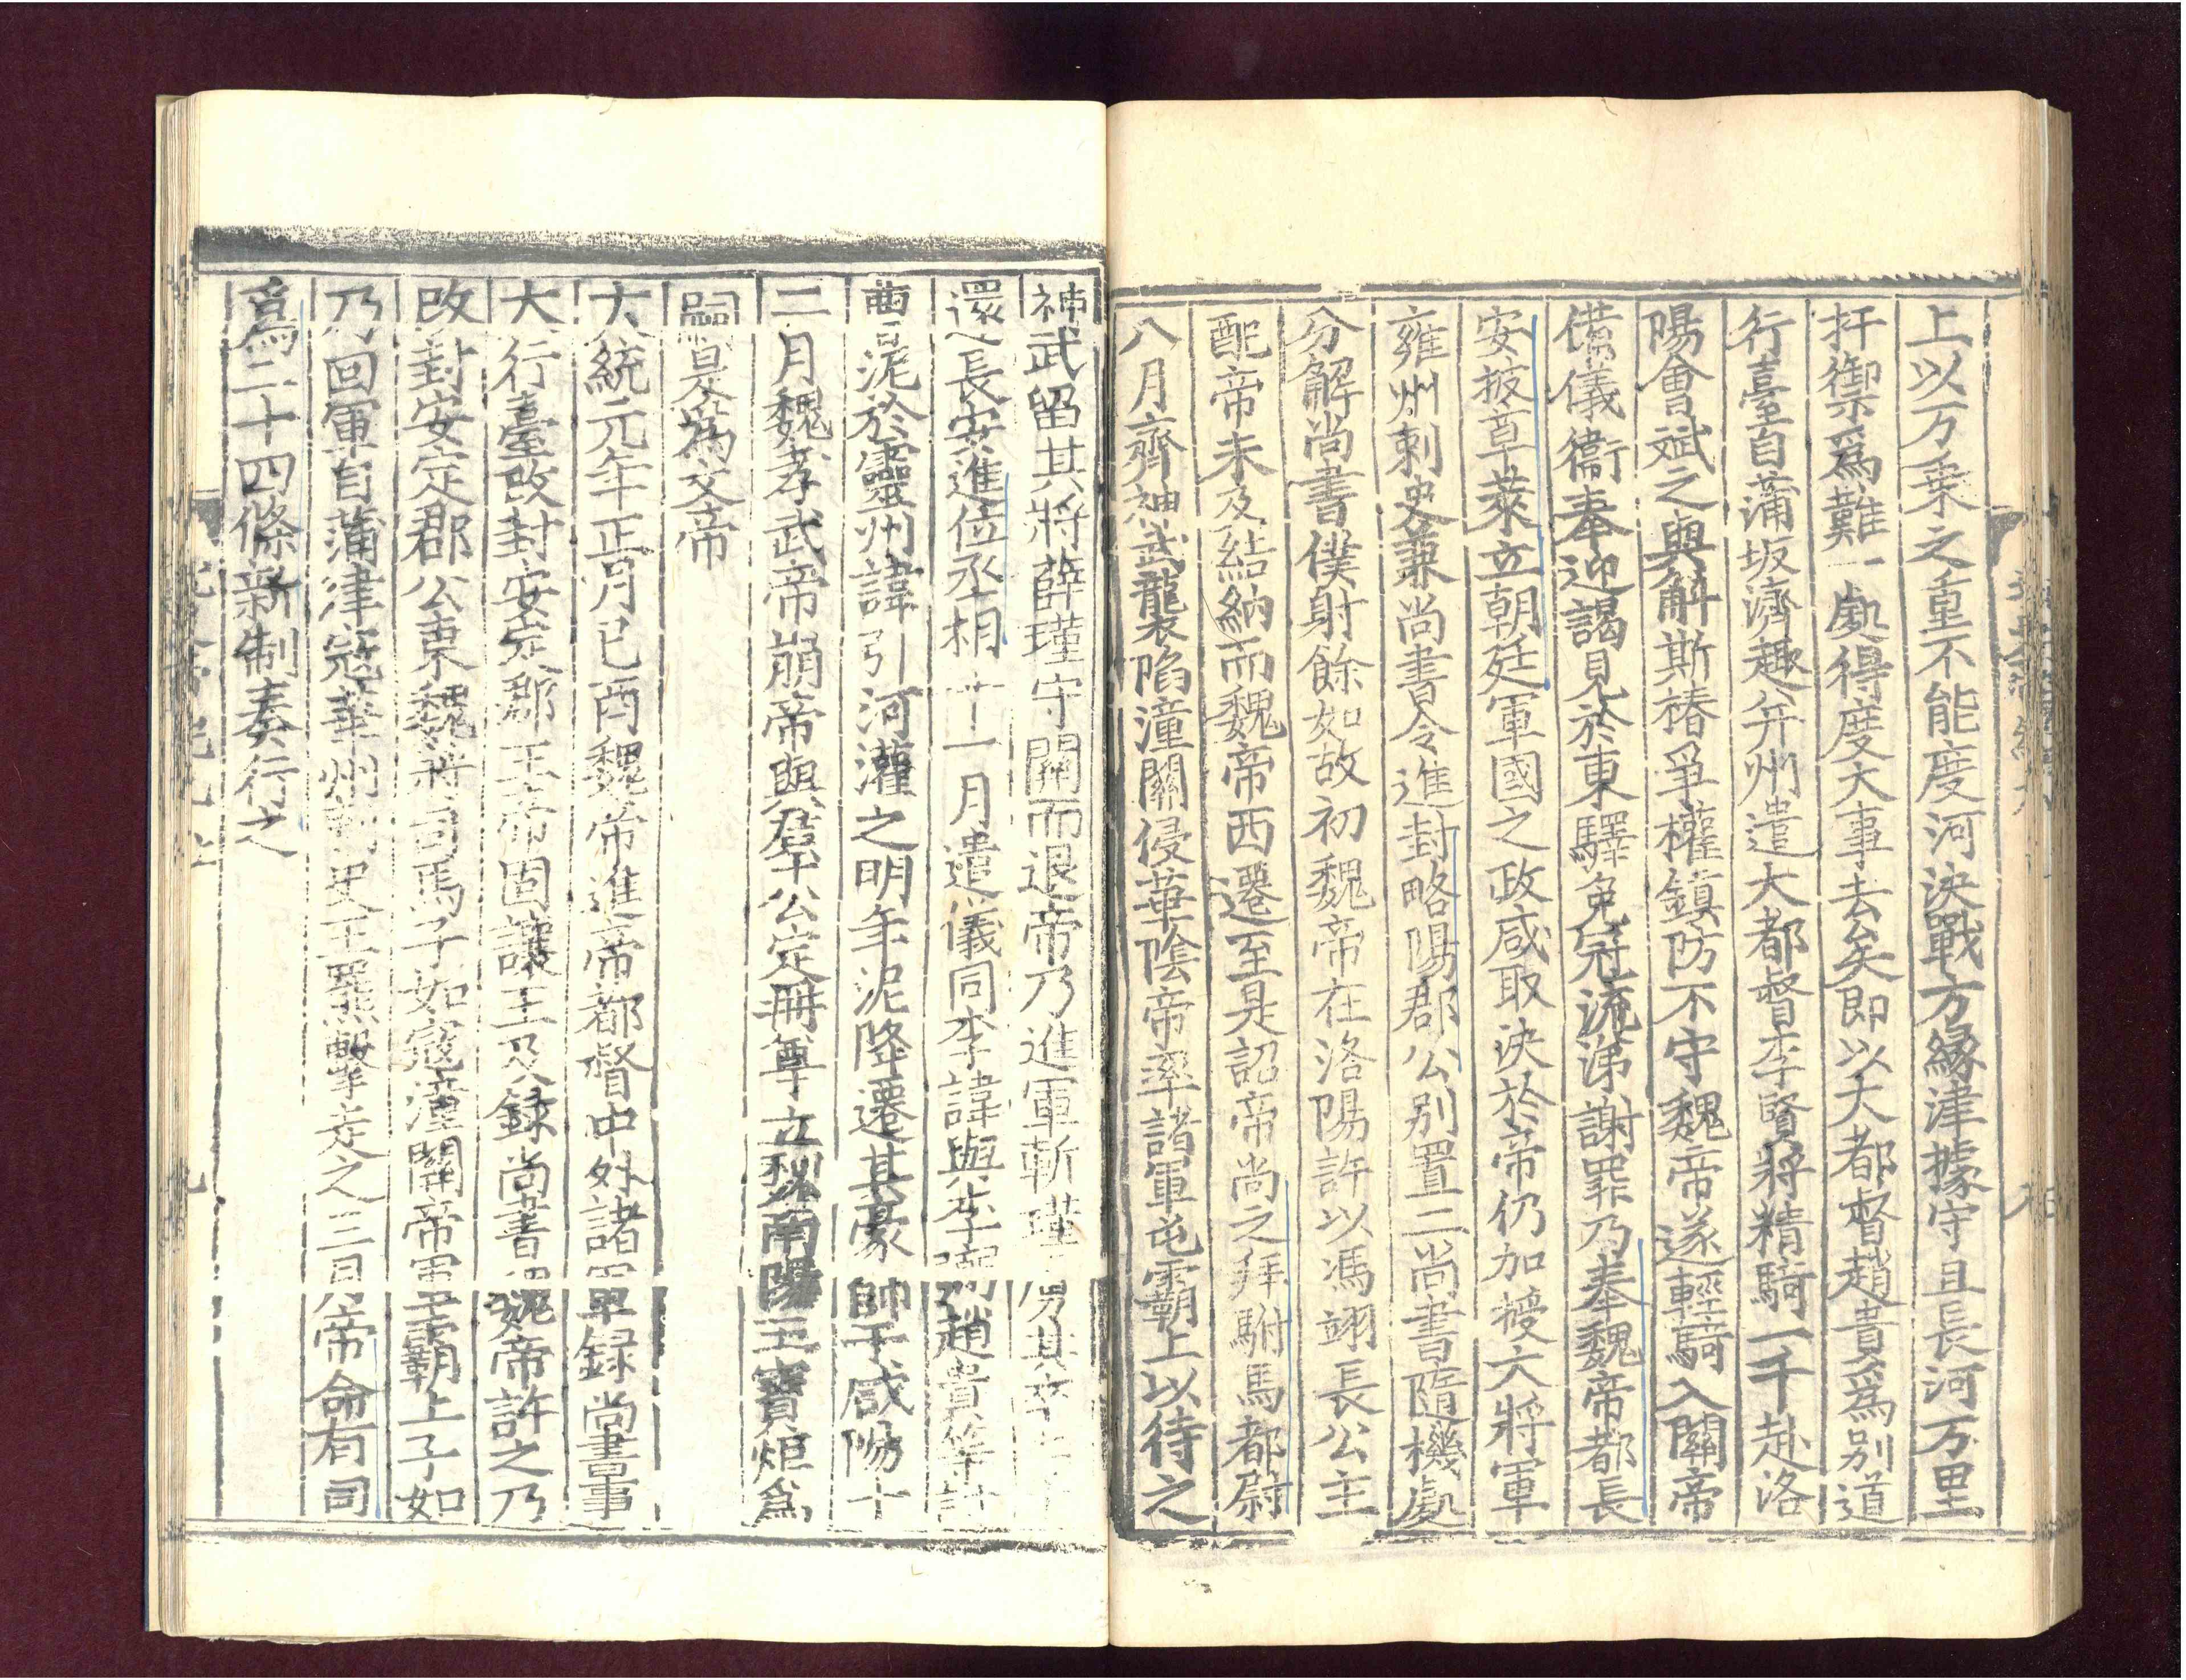 上以万乗之重不能度河決戰方緣津據守且長河万里
扞禦爲難一處得度大事去矣即以大都督趙貴爲別道
行臺自蒲坂濟趣并州遣大都督李賢將精騎一千赴洛
陽會斌之與斛斯椿爭權鎮防不守魏帝遂輕騎入關帝
備儀衛奉迎謁見於東驛免冠流涕謝罪乃奉魏帝都長
安披草萊立朝廷軍國之政咸取決於帝仍加授大將軍
雍州刺史兼尚書令進封略陽郡公別置二尚書隨機處
分解尚書僕射餘如故初魏帝在洛陽許以馮翊長公主
配帝未及結納而魏帝西遷至是詔帝尚之拜駙馬都尉
八月齊神武襲陷潼關侵華陰帝率諸軍屯霸上以待之
神武留其將薛瑾守關而退帝乃進軍斬瑾虜其卒
還長安進位丞相十一月遣儀同李諱與李弼趙貴等討
曹泥於靈州諱引河灌之明年泥降遷其豪帥于咸陽十
二月魏孝武帝崩帝與群公定冊尊立魏南陽王寶炬爲
嗣是爲文帝
大統元年正月己酉魏帝進帝都督中外諸軍錄尚書事
大行臺改封安定郡王帝固讓王及錄尚書魏帝許之乃
改封安定郡公東魏將司馬子如寇潼關帝軍霸上子如
乃回軍自蒲津寇華州刺史王羆擊走之三月帝命有司
爲二十四條新制奏行之